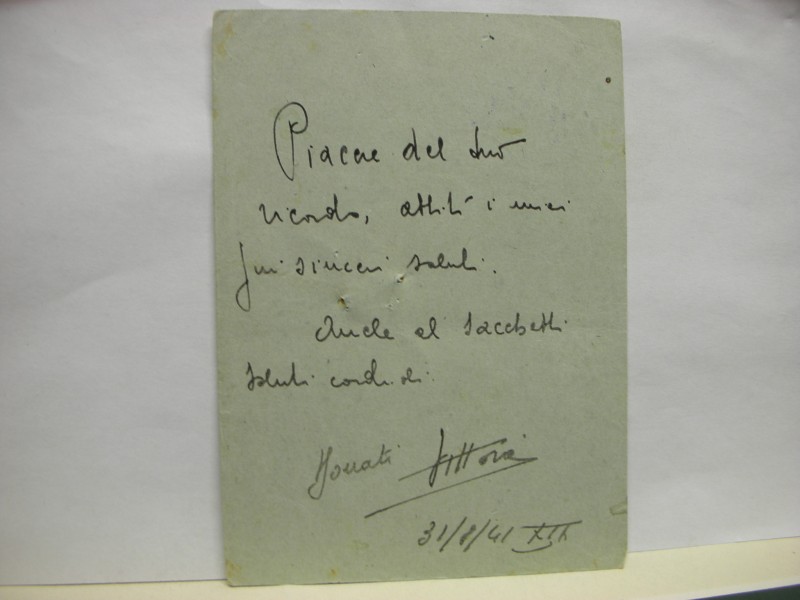 Piacere del suo
ricordo, accetti i miei
più sinceri saluti.
Anche al Sacchetti
saluti cordiali.
Donati Vittorio
31/8/41 XIX